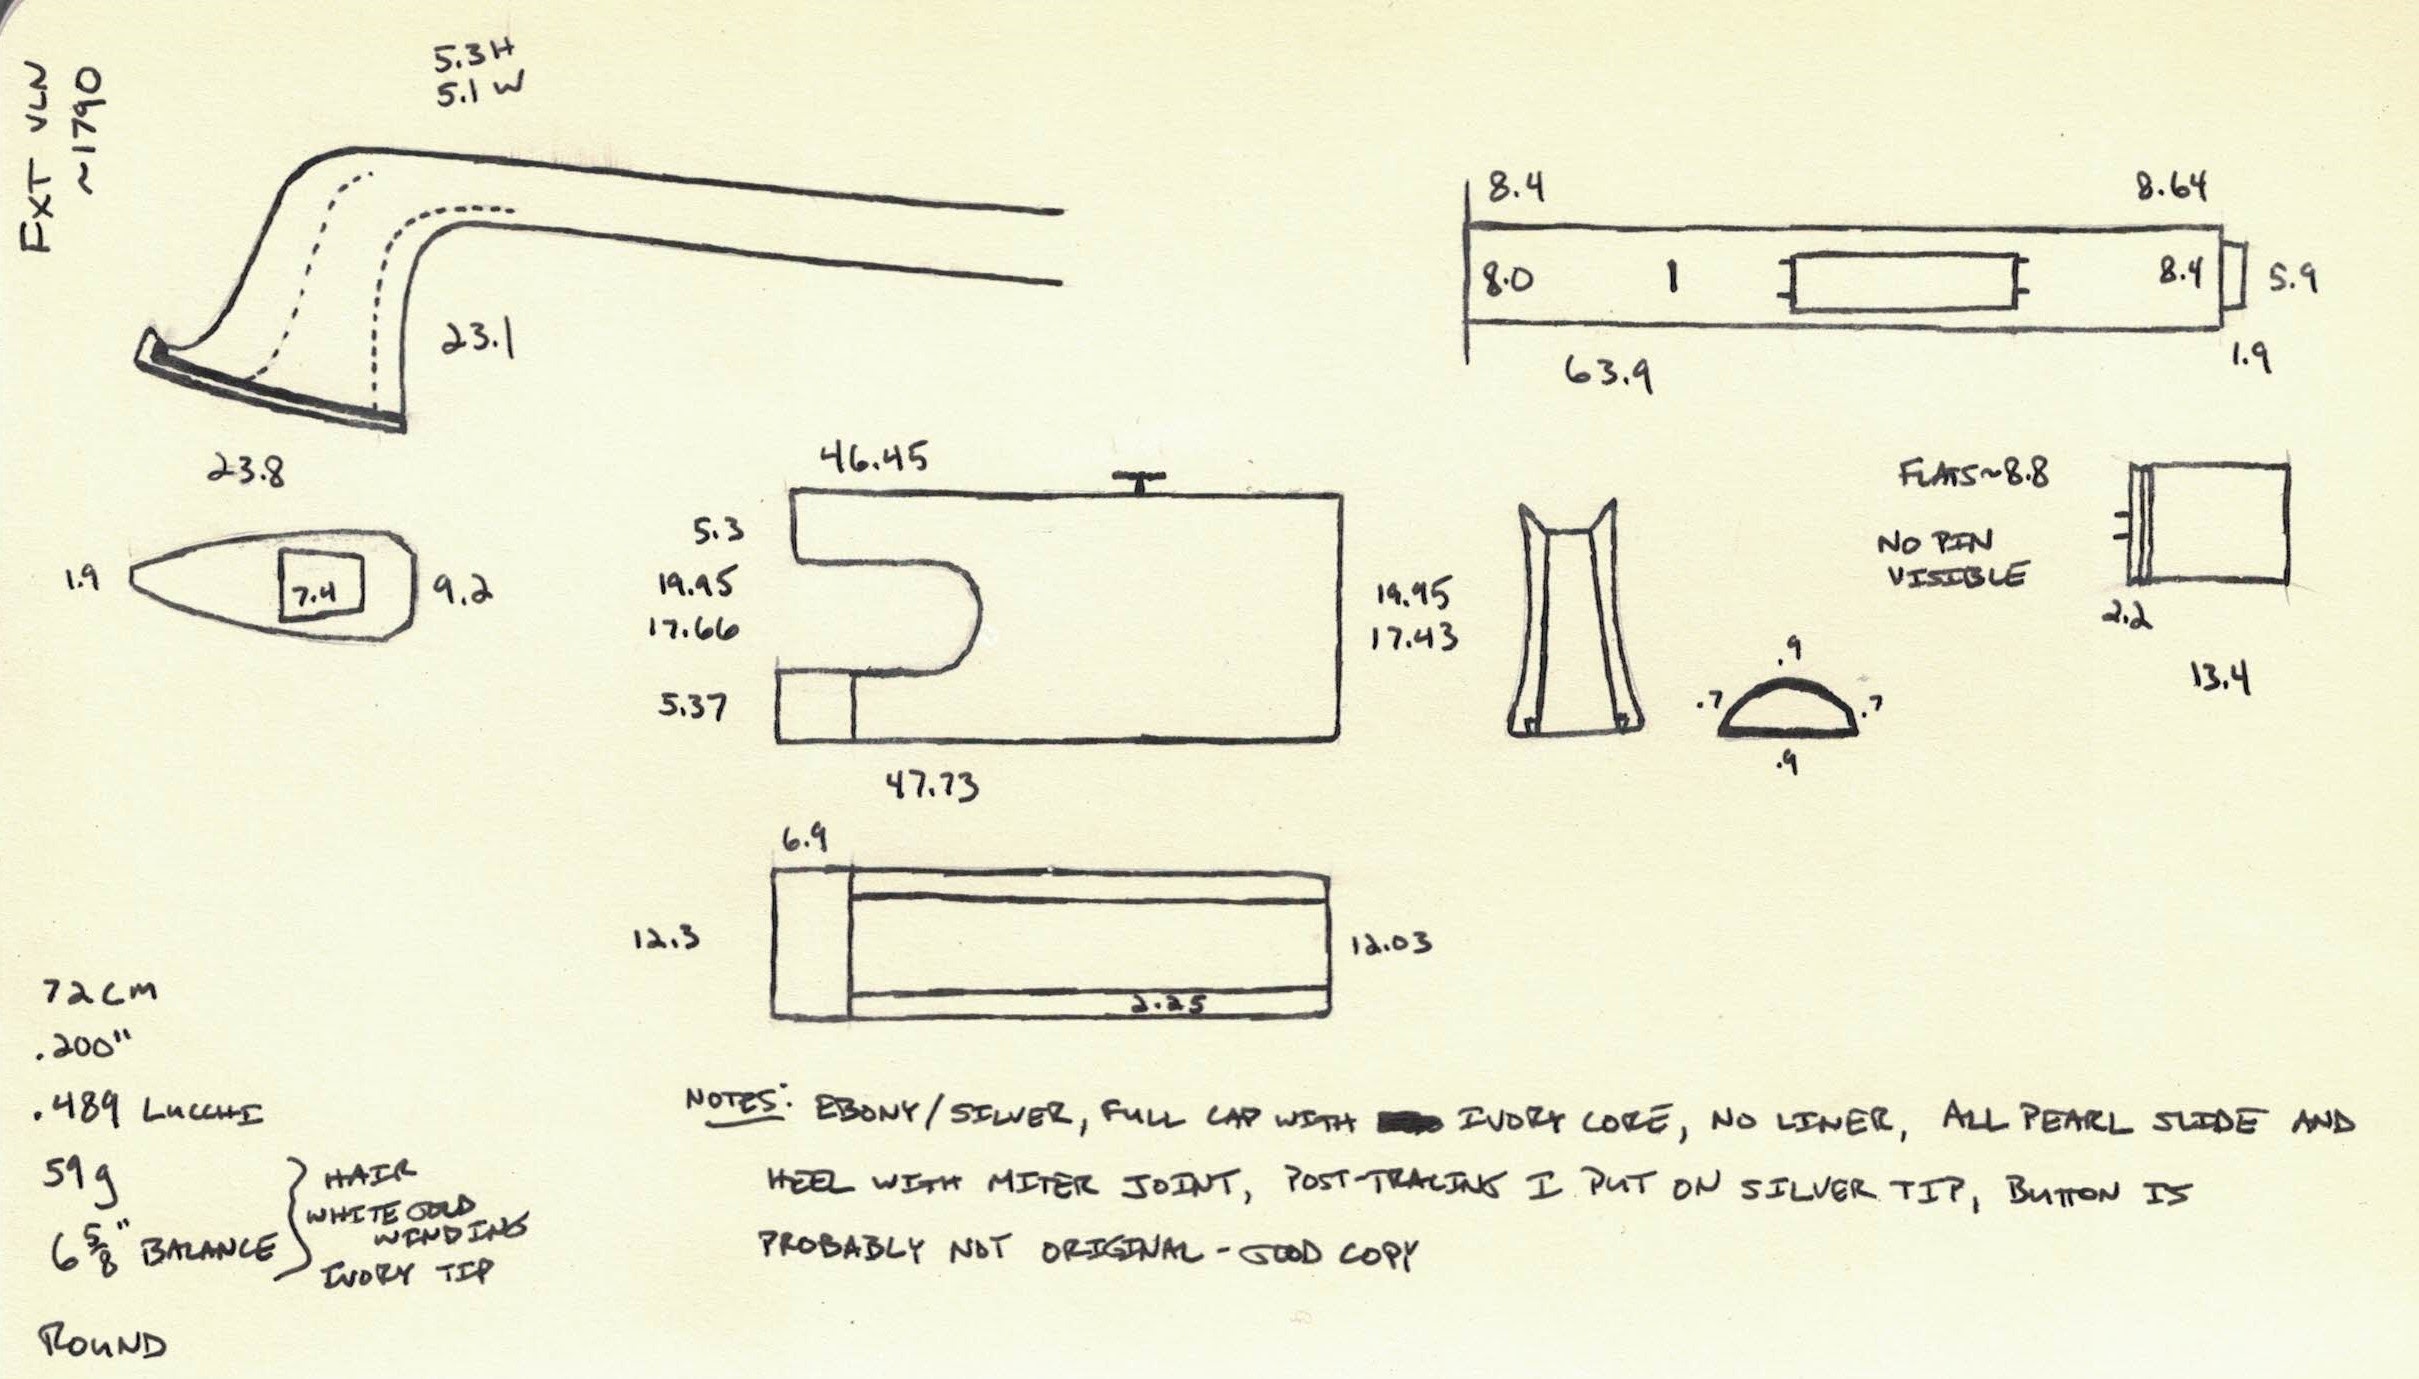 FXT VLN
~1790
5.3 H
5.1 W
23.1
23.8
1.9
7.4
9.2
8.4
8.64
8.0
8.4
5.9
63.9
1.9
46.45
5.3
19.95
17.66
5.37
47.73
19.95
17.43
.9
.7
.7
.9
FLATS~8.8
NO PIN
VISIBLE
2.2
13.4
6.9
12.3
12.03
2.25
72 CM
.200"
.489 LUCCHI
59g
6 5/8" BALANCE
HAIR
WHITE GOLD
WINDING
IVORY TIP
ROUND
NOTES: EBONY/SILVER, FULL CAP WITH IVORY CORE, NO LINER, ALL PEARL SLIDE AND
HEEL WITH MITER JOINT, POST-TRACING I PUT ON SILVER TIP, BUTTON IS
PROBABLY NOT ORIGINAL - GOOD COPY